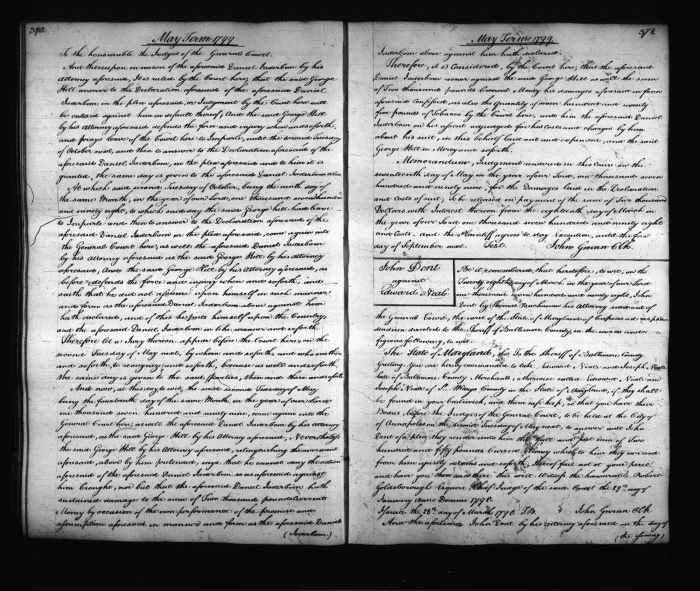 372
May Term 1799
To the honourable the Judges of the General Court.
And thereupon on motion of the aforesaid Daniel Inderbom by his
attorney aforesaid, It is ruled by the Court here, that the said George
Hill answer to the Declaration aforesaid of the aforesaid Daniel
Inderbom in the plea aforesaid, or Judgment by the Court here will
be entered against him in default thereof, And the said George Hill
by his Attorney aforesaid defends the force and injury when and so forth,
and prays leave of the Court here to Imparle, until the second Tuesday
of October next, and then to answer to the Declaration aforesaid of the
aforesaid Daniel Inderbom, in the plea aforesaid and to him it is
granted, the same day is given to the aforesaid Daniel Inderbom also
At which said second Tuesday of October, being the ninth day of
the same Month, in the year of our Lord, one thousand seven hundred
and ninety eight, to which said day the said George Hill had leave
to Imparle and then to answer to the Declaration aforesaid of the
aforesaid Daniel Inderbom in the plea aforesaid, came again into
the General Court here, as well the aforesaid Daniel Inderbom
by his attorney aforesaid as the said George Hill by his attorney
aforesaid, And the said George Hill by his Attorney aforesaid, as
before, defends the force and injury when and so forth, and
saith that he did not assume upon himself in such manner
and form as the aforesaid Daniel Inderbom above against him
hath declared, and of this he puts himself upon the Country,
and the aforesaid Daniel Inderbom in like manner and so forth
Therefore let a Jury thereon appear before the Court here, on the
second Tuesday of May next, by whom and so forth, and who neither
and so forth, to recognize and so forth, because as well and so forth,
the same day is given to the said parties, then and there and so forth
And now, at this day to wit, the said second Tuesday of May
being the fourteenth day of the same Month in the year of our Lord
one thousand seven hundred and ninety nine, come again into the
General Court here, as well the aforesaid Daniel Inderbom by his attorney
aforesaid, as the said George Hill by his Attorney aforesaid, Nevertheless
the said George Hill by his Attorney aforesaid, relinquishing the averment
aforesaid, above by him pretended, says, that he cannot deny the action
aforesaid of the aforesaid Daniel Inderbom in as aforesaid against
him brought, nor but that the aforesaid Daniel Inderbom hath
sustained damage to the sum of Two thousand pounds Current
Money by occasion of the non performance of the promise and
assumption aforesaid in manner and form as the aforesaid Daniel
(Inderbom)
May Term 1799
Inderbom above against him hath declared.
Therefore, it is Considered, by the Court here, that the aforesaid
Daniel Inderbom recover against the said George Hill as well the sum
of Two thousand pounds Current Money his damages aforesaid in form
aforesaid confessed, as also the Quantity of seven hundred and
five pounds of Tobacco by the Court here, unto him the aforesaid Daniel
Inderbom on his assent adjudged for his costs and charges by him
about his suit, in this behalf laid out and expended, and the said
George Hill in Mercy and so forth.
Memorandum, Judgment entered in this Cause on the
seventeenth day of May in the year of Lord, one thousand seven
hundred and ninety nine, for the Damages laid in the Declaration
and Costs of suit, To be released on payment of the sum of two thousand
Dollars with Interest thereon from the eighteenth day of March in
the year of our Lord one thousand seven hundred and ninety eight
and Costs, and the Plaintiff agrees to stay Execution until the first
day of September next. Test. John Gwinn Clk
John Dent
against
Edward Neale
Be it remembered, that heretofore, to wit, on the
Twenty eighth day of March in the year of our Lord
one thousand seven hundred and ninety eight, John
Dent by Thomas Buchanan his Attorney sued out of
the General Court, the writ of the State of Maryland, of Capias ad respon
dendum directed to the Sheriff of Baltimore County, in the words and
figures following, to wit.
The State of Maryland, To the Sheriff of Baltimore County
Greeting, You are hereby commanded to take Edward Neale and Joseph Neale
late of Baltimore County, Merchants otherwise called Edward Neale and
Joseph Neale of St. Marys County in the State of Maryland, if they shall
be found in your bailiwick, and them safe keep, so that you have their
Bodies, before the Judges of the General Court, to be held at the City of
of Annapolis on the second Tuesday of May next, to answer unto John
Dent of a plea, they render unto him the just sum of Two
hundred and fifty pounds Current Money which to him they owe and
from him justly detain and so forth, hereof fail not at your peril
and have you then and there this writ. Witness the honorable Robert
Goldsborough Esquire Chief Judge of the said Court the 17th day of
January Anno Domini 1798.
Issued the 28th day of March 1798. John Gwinn Clk
And the aforesaid John Dent by his attorney aforesaid in the day of